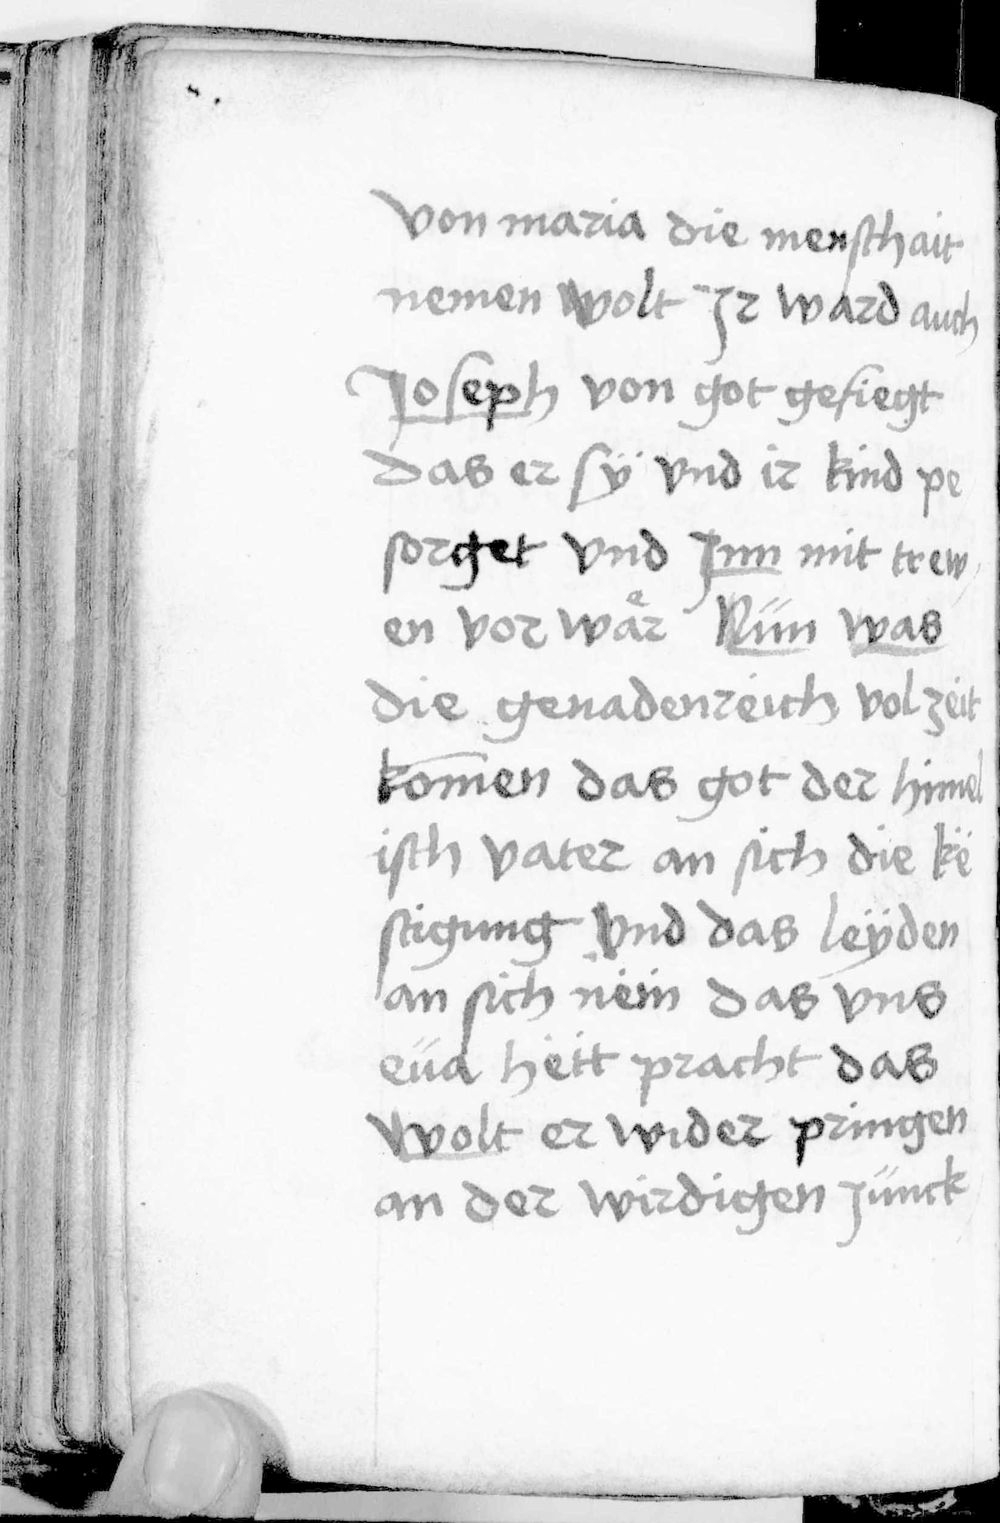 von maria die menschait
nemen wolt Jr ward auch
Joseph von got gefiegt
das er sÿ vnd ir kind pe
sorget vnd Jnn mit trew
en vor waͤr Nün was
die genadenreich vol zeit
kom̄en das got der himel
isch vater an sich die kë
stigung vnd das leÿden
an sich nëin das vns
eüa hëtt pracht das
wolt er wider pringen
an der wirdigen jünck